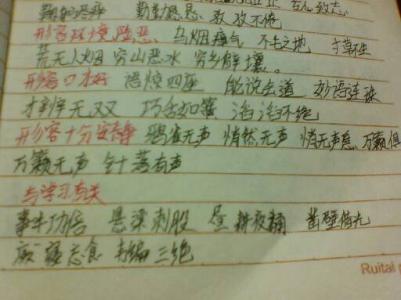 勤勤恳恳 孜孜不倦
形容环境险恶 乌烟瘴气 不毛之地 寸草不生
荒无人烟 穷山恶水 穷乡僻壤
形容口才好 语惊四座 能说会道 妙语连珠
才辩无双 巧舌如簧 滔滔不绝
形容十分安静 鸦雀无声 悄然无声 悄无声息 万籁俱
万籁无声 针落有声
与学习有关
事半功倍 悬梁刺股 昼耕夜诵 凿壁借光
废寝忘食 韦编三绝
Ruital